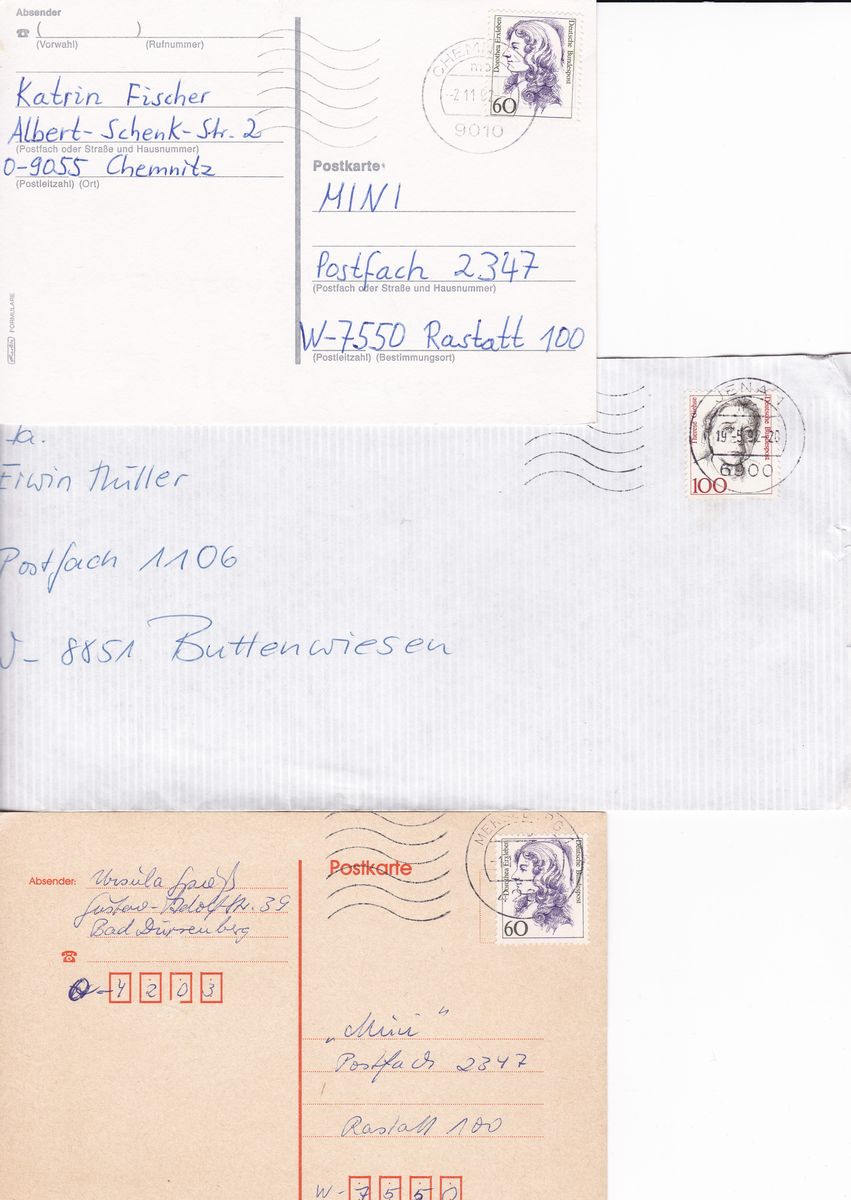 Absender
☎ ( )
(Vorwahl) (Rufnummer)
Katrin Fischer
Albert-Schenk-Str. 2
(Postfach oder Straße und Hausnummer)
O-9055 Chemnitz
(Postleitzahl) (Ort)
FORMULARE
Dorothea Erxleben
Deutsche Bundespost
60
-2.11.92
9010
Postkarte
MINI
Postfach 2347
(Postfach oder Straße und Hausnummer)
W-7550 Rastatt 100
(Postleitzahl) (Bestimmungsort)
JENA 1
19.-5.92-20
6900
Therese Giehse
Deutsche Bundespost
100
Fa.
Erwin Müller
Postfach 1106
W- 8851 Buttenwiesen
Dorothea Erxleben
Deutsche Bundespost
60
Absender: Ursula
Gustav-Adolf-Str. 39
Bad Dürrenberg
O-4203
Postkarte
„Mini“
Postfach 2347
Rastatt 100
W-7550